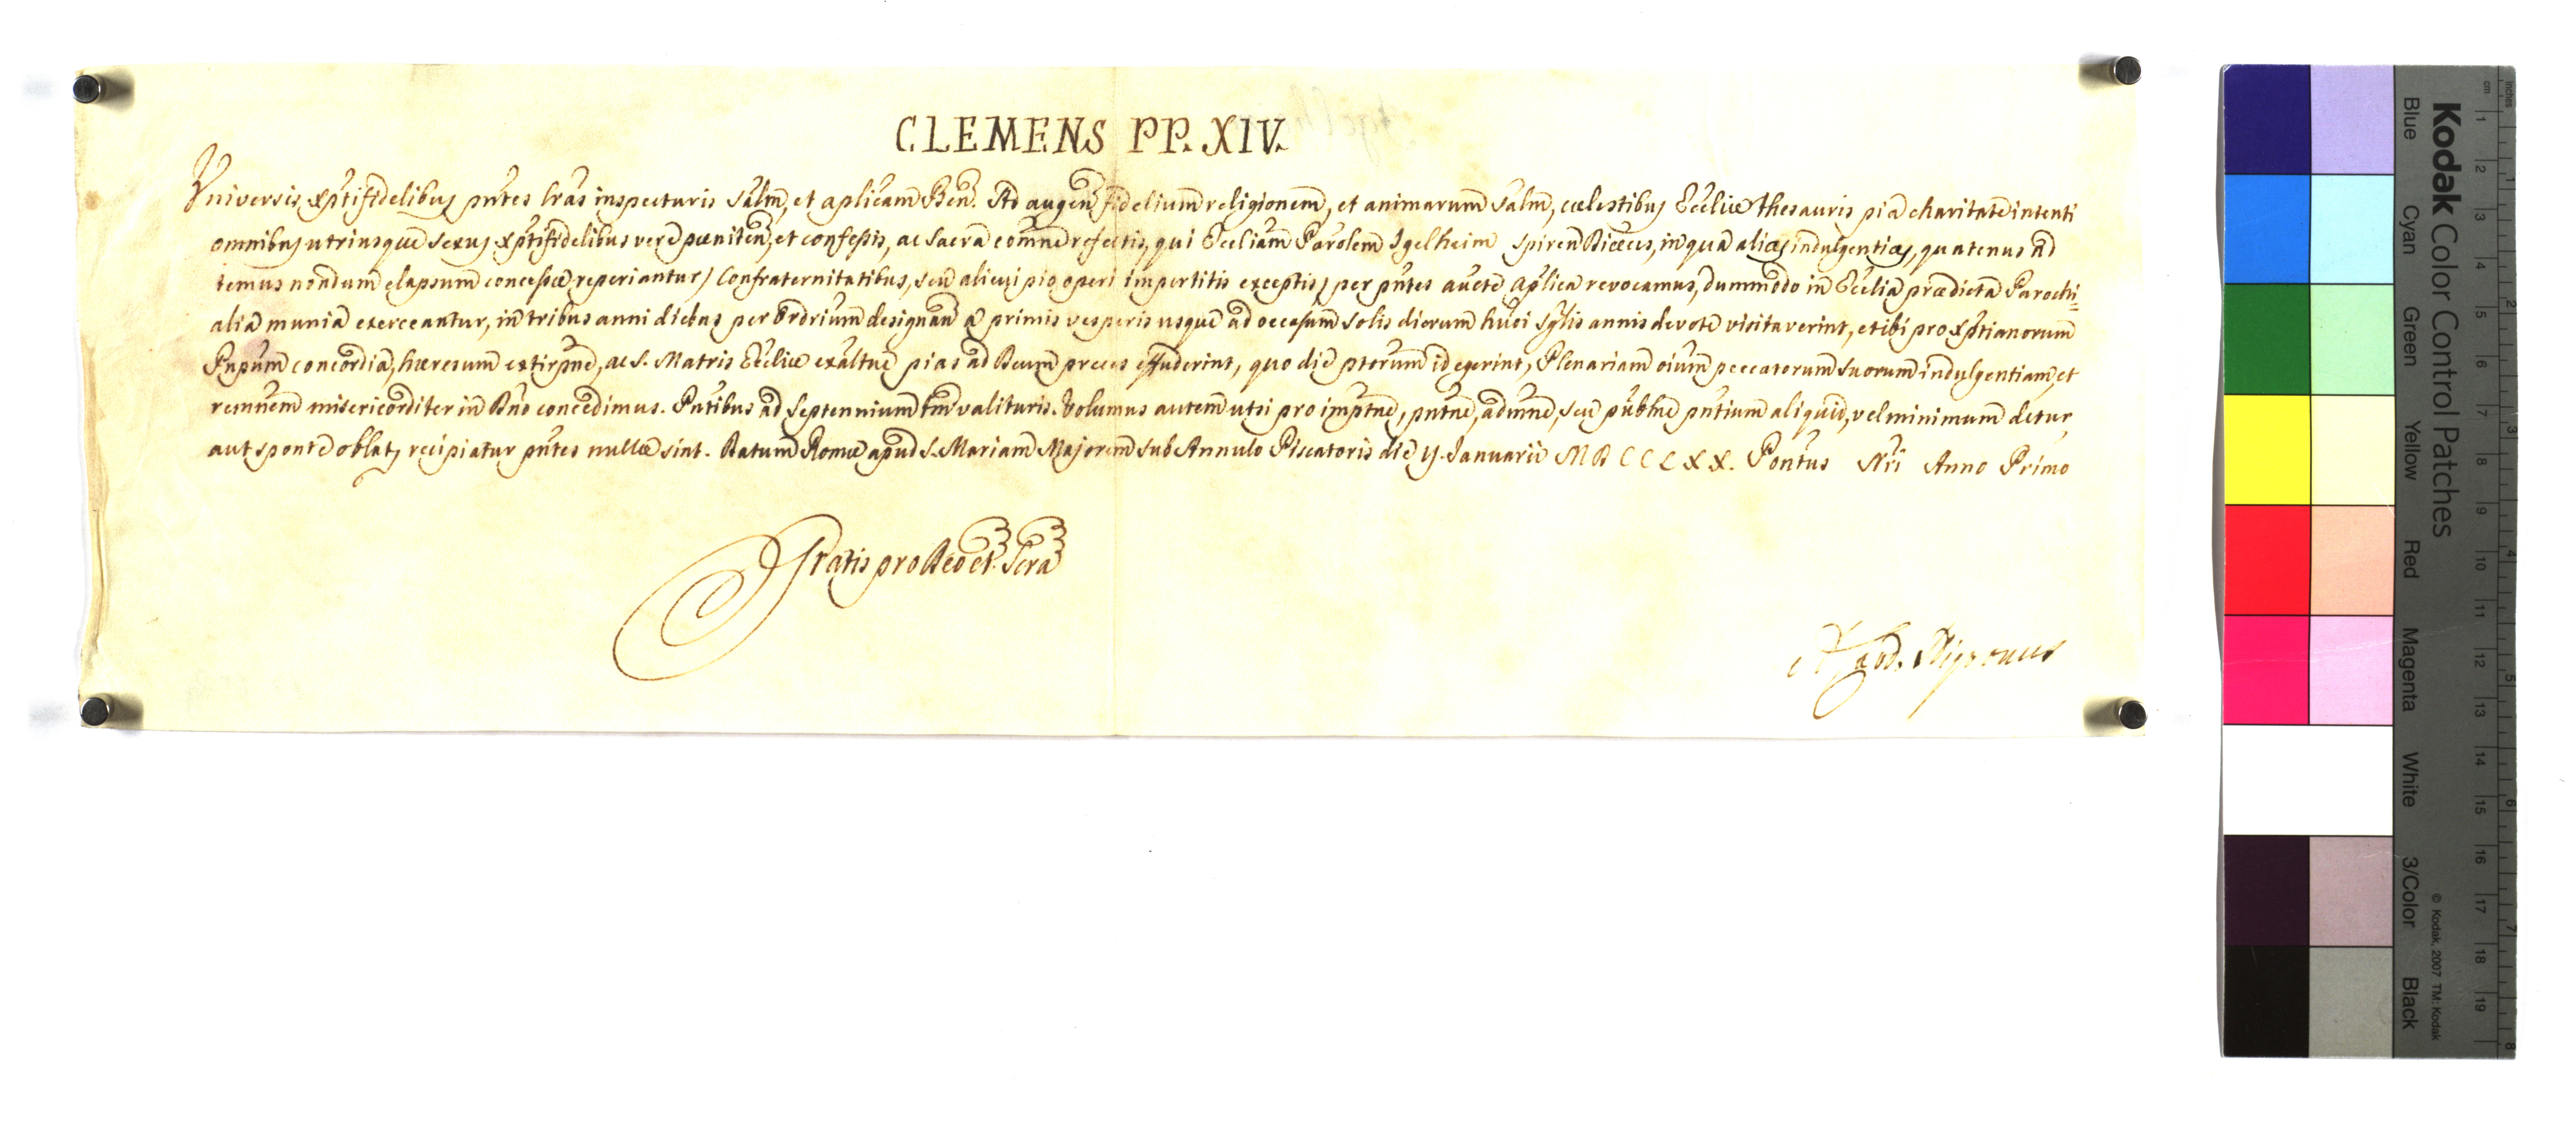 CLEMENS PP. XIV.
Universis Xptifidelibus pntes lras inspecturis Salm, et aplicam Ben. Ad augen fidelium religionem, et animarum Salm, cœlestibus Eccliæ thesauris pia charitate intenti
omnibus utriusque sexus Xptifidelibus vere pœniten, et confessis, ac Sacra comne refectis, qui Eccliam Parolem Igelheim Spiren Diœcus, in qua aliæ indulgentiæ, quatenus ad
temus nondum elapsum concessæ reperiantur, Confraternitatibus, seu alicui pio operi impertitis exceptis, per pntes aucte Aplica revocamus, dummodo in Ecclia prædicta Parochi=
alia munia exerceantur, in tribus anni diebus per Ordrium designan a primis vesperis usque ad occasum Solis dierum hui Sglis annis devote visitaverint, et ibi pro Xptianorum
Pnpum concordia, hæresum extirpne, ac S. Matris Ecclliæ exaltne pias ad Deum preces effuderint, quo die ptorum id egerint, Plenariam oium peccatorum suorum indulgentiam, et
remnem misericorditer in Dno concedimus. Pntibus ad Septennium tm valituris. Volumus autem ut si pro imptne, pntne, admne, seu publne pntium aliquid, vel minimum detur,
aut sponte oblat, recipiatur pntes nullæ sint. Datum Romæ apud S. Mariam Majorem sub Annulo Piscatoris die ij. Januarii MDCCLXX. Pontus Nri Anno Primo
Gratis pro Deo et Scra